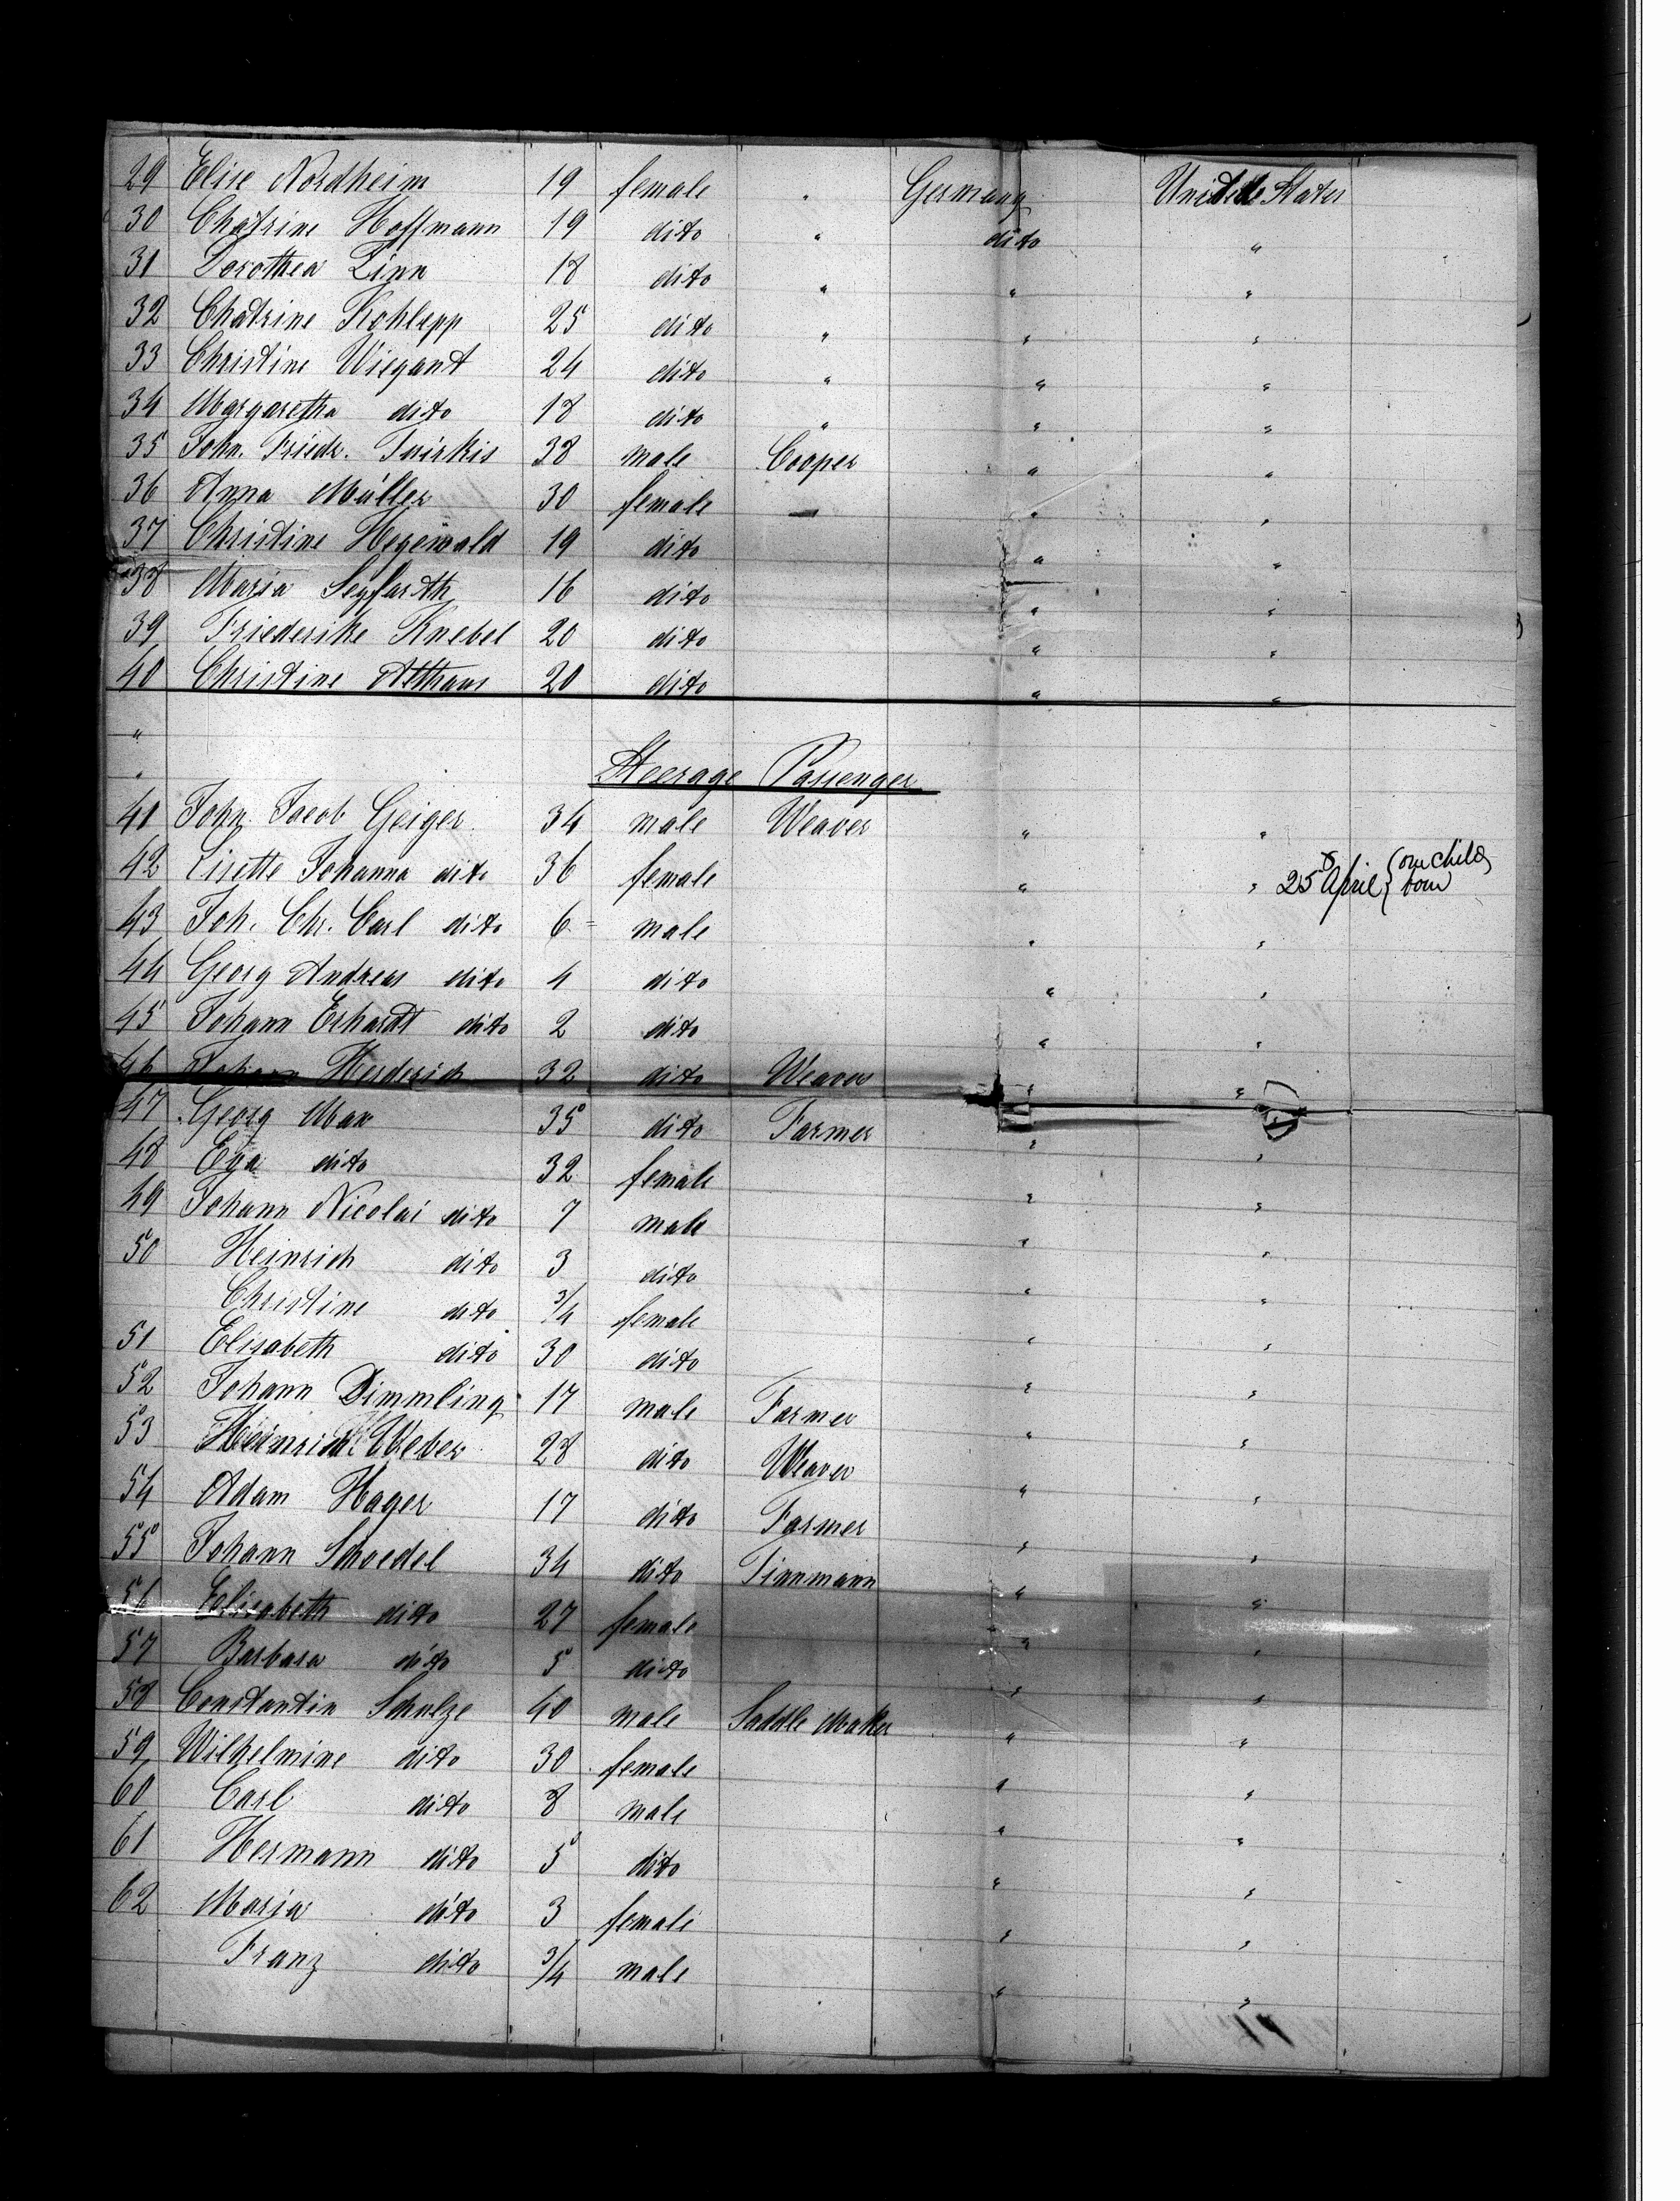 29 Elise Nordheim 19 female " Germany United States
30 Chatrine Hoffmann 19 dito " dito "
31 Dorothea Linn 18 dito " " "
32 Chatrine Kohlepp 25 dito " " "
33 Christine Wiegant 24 dito " " "
34 Margaretha dito 18 dito " " "
35 John. Friedr. 38 male Cooper " "
36 Anna Müller 30 female — " "
37 Christine Hegewald 19 dito " "
38 Maria Seyfardth 16 dito " "
39 Friederike Knebel 20 dito " "
40 Christine Althaus 20 dito " "
"
" Steerage Passenger
41 John. Jacob Geiger 34 male Weaver " "
42 Lisette Johanna dito 36 female " " 25 April { one child born
43 Joh. Chr. Carl dito 6 male " "
44 Georg Andreas dito 4 dito " "
45 Johann Erhardt dito 2 dito " "
46 Johann Herderich 32 dito Weaver " "
47 Georg Man 35 dito Farmer " "
48 Eva dito 32 female " "
49 Johann Nicolai dito 7 male " "
50 Heinrich dito 3 dito " "
Christine dito 3/4 female " "
51 Elisabeth dito 30 dito " "
52 Johann Dimmling 17 male Farmer " "
53 Heinrich Weber 28 dito Weaver " "
54 Adam Hager 17 dito Farmer " "
55 Johann Schoedel 34 dito Tinnmann " "
56 Elisabeth dito 27 female " "
57 Barbara dito 5 dito " "
58 Constantin Schulze 40 male Saddle Maker " "
59 Wilhelmine dito 30 female " "
60 Carl dito 8 male " "
61 Hermann dito 5 dito " "
62 Maria dito 3 female " "
Franz dito 3/4 male " "